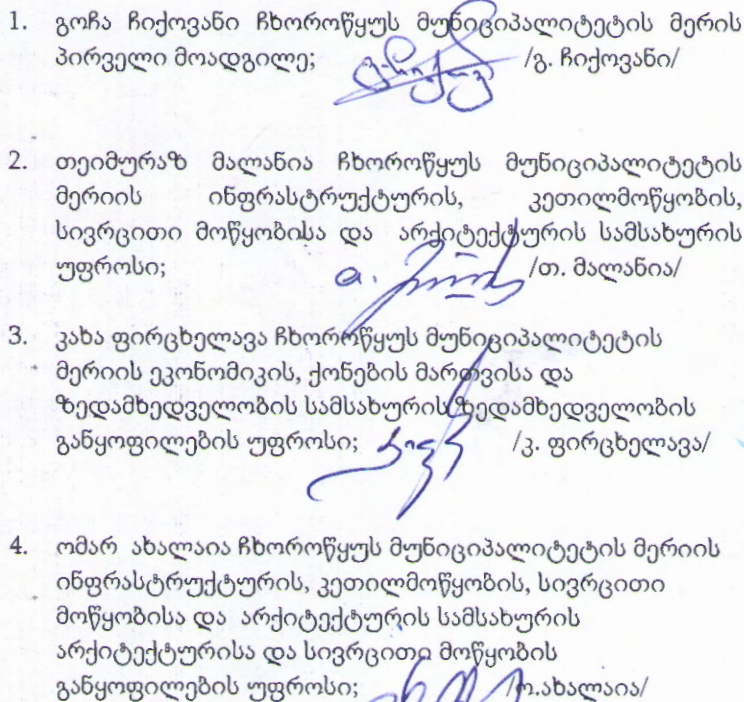 1. გოჩა ჩიქოვანი ჩხოროწყუს მუნიციპალიტეტის მერის
პირველი მოადგილე; /გ. ჩიქოვანი/
2. თეიმურაზ მალანია ჩხოროწყუს მუნიციპალიტეტის
მერიის ინფრასტრუქტურის, კეთილმოწყობის,
სივრცითი მოწყობისა და არქიტექტურის სამსახურის
უფროსი; /თ. მალანია/
3. კახა ფირცხელავა ჩხოროწყუს მუნიციპალიტეტის
მერიის ეკონომიკის, ქონების მართვისა და
ზედამხედველობის სამსახურის ზედამხედველობის
განყოფილების უფროსი; /კ. ფირცხელავა/
4. ომარ ახალაია ჩხოროწყუს მუნიციპალიტეტის მერიის
ინფრასტრუქტურის, კეთილმოწყობის, სივრცითი
მოწყობისა და არქიტექტურის სამსახურის
არქიტექტურისა და სივრცითი მოწყობის
განყოფილების უფროსი; /ო.ახალაია/